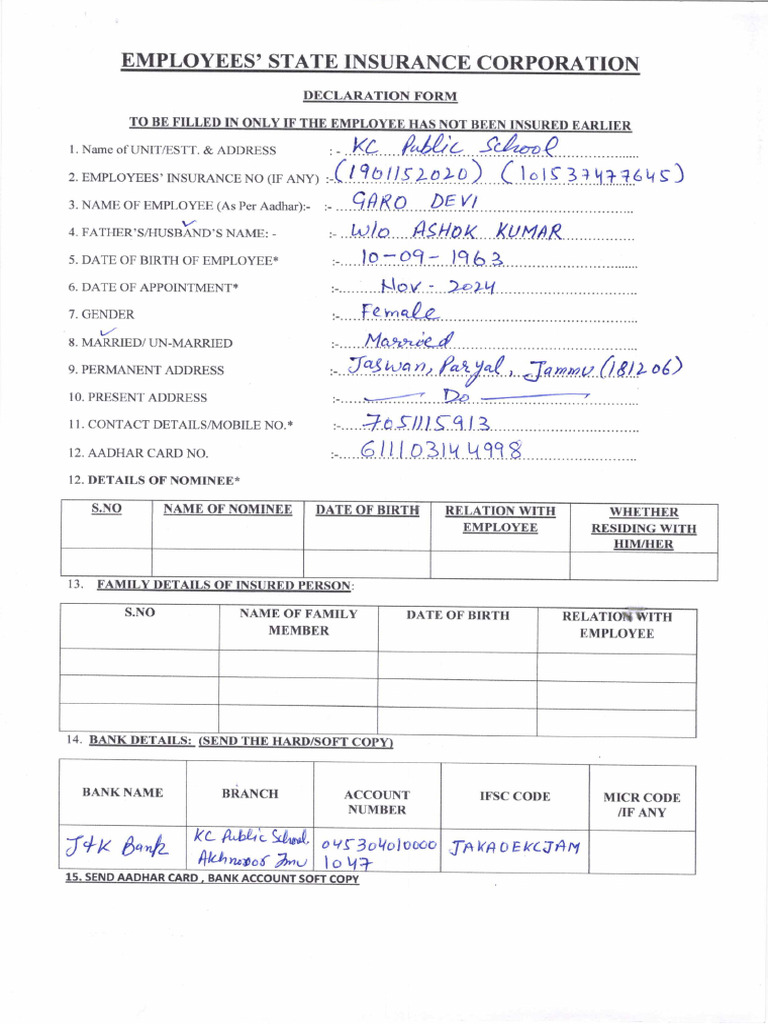 EMPLOYEES' STATE INSURANCE CORPORATION
DECLARATION FORM
TO BE FILLED IN ONLY IF THE EMPLOYEE HAS NOT BEEN INSURED EARLIER
1. Name of UNIT/ESTT. & ADDRESS :- KC Public School
2. EMPLOYEES' INSURANCE NO (IF ANY) :- (1901152020) (101537477645)
3. NAME OF EMPLOYEE (As Per Aadhar):- :- GARO DEVI
4. FATHER'S/HUSBAND'S NAME: - :- W/o ASHOK KUMAR
5. DATE OF BIRTH OF EMPLOYEE* :- 10-09-1963
6. DATE OF APPOINTMENT* :- Nov - 2024
7. GENDER :- Female
8. MARRIED/ UN-MARRIED :- Married
9. PERMANENT ADDRESS :- Jaswan, Paryal, Jammu (181206)
10. PRESENT ADDRESS :- — Do —
11. CONTACT DETAILS/MOBILE NO.* :- 7051115913
12. AADHAR CARD NO. :- 611103144998
12. DETAILS OF NOMINEE*
S.NO NAME OF NOMINEE DATE OF BIRTH RELATION WITH EMPLOYEE WHETHER RESIDING WITH HIM/HER
13. FAMILY DETAILS OF INSURED PERSON:
S.NO NAME OF FAMILY MEMBER DATE OF BIRTH RELATION WITH EMPLOYEE
14. BANK DETAILS: (SEND THE HARD/SOFT COPY)
BANK NAME BRANCH ACCOUNT NUMBER IFSC CODE MICR CODE /IF ANY
J&K Bank KC Public School Akhnoor Jmu 045304010000 1047 JAKA0EKCJAM
15. SEND AADHAR CARD , BANK ACCOUNT SOFT COPY